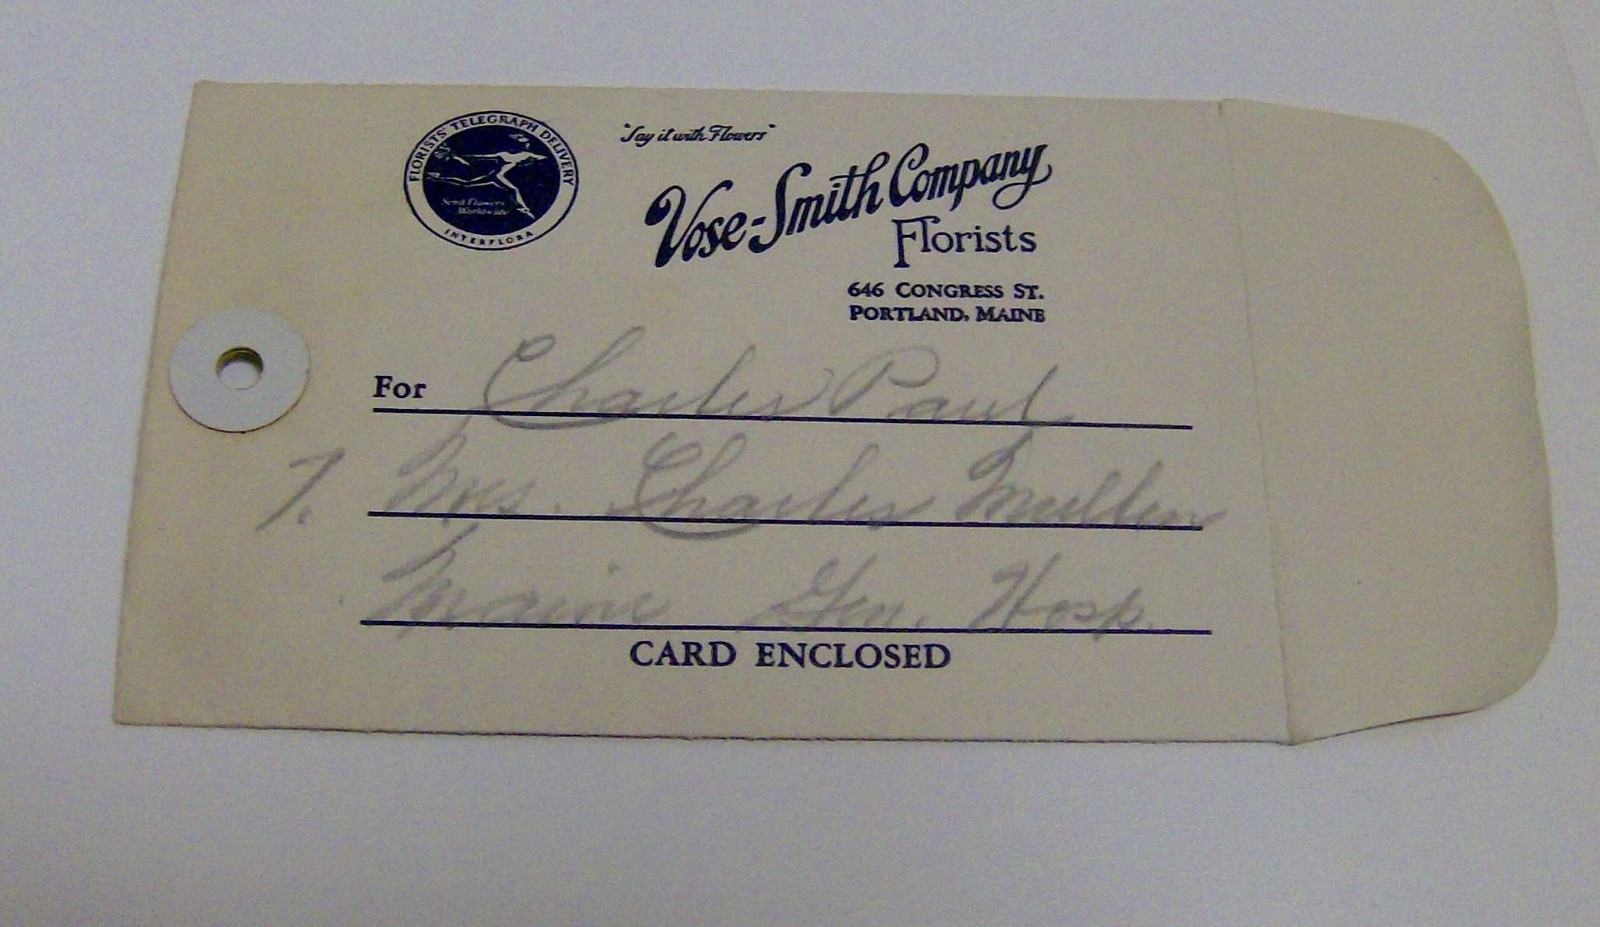 FLORISTS' TELEGRAPH DELIVERY
Send Flowers
World-wide
INTERFLORA
"Say it with Flowers"
Vose-Smith Company
Florists
646 CONGRESS ST.
PORTLAND, MAINE
For Charles Paul
7. Mrs. Charles Mullen
Maine Gen. Hosp.
CARD ENCLOSED